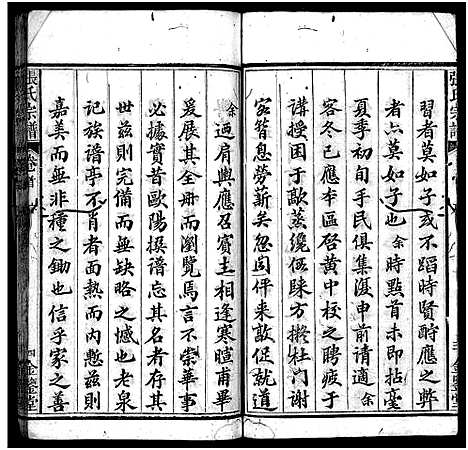 張氏宗譜
習者莫如子或不蹈時賢酧應之弊
者亦莫如子也余時點首未即拈毫
夏季初旬手民俱集復申前請適余
客冬已應本區啓黄中校之聘疲于
講授困于歐蒸纔伍陳方擬杜門謝
客暫息勞薪矣忽因伻来敦促就道
三 金鑒堂
余迺肩輿應召賓主相逢寒暄甫畢
爰展其全册而瀏覧焉言不崇華事
必據實昔歐陽譔譜忘其名者
世茲則完備而無缺略之憾也老泉
記族譜亭不肖者面熱而内慙茲則
嘉美而無非種之鋤也信乎家之善
張氏宗譜
卷首
四 金鑒堂